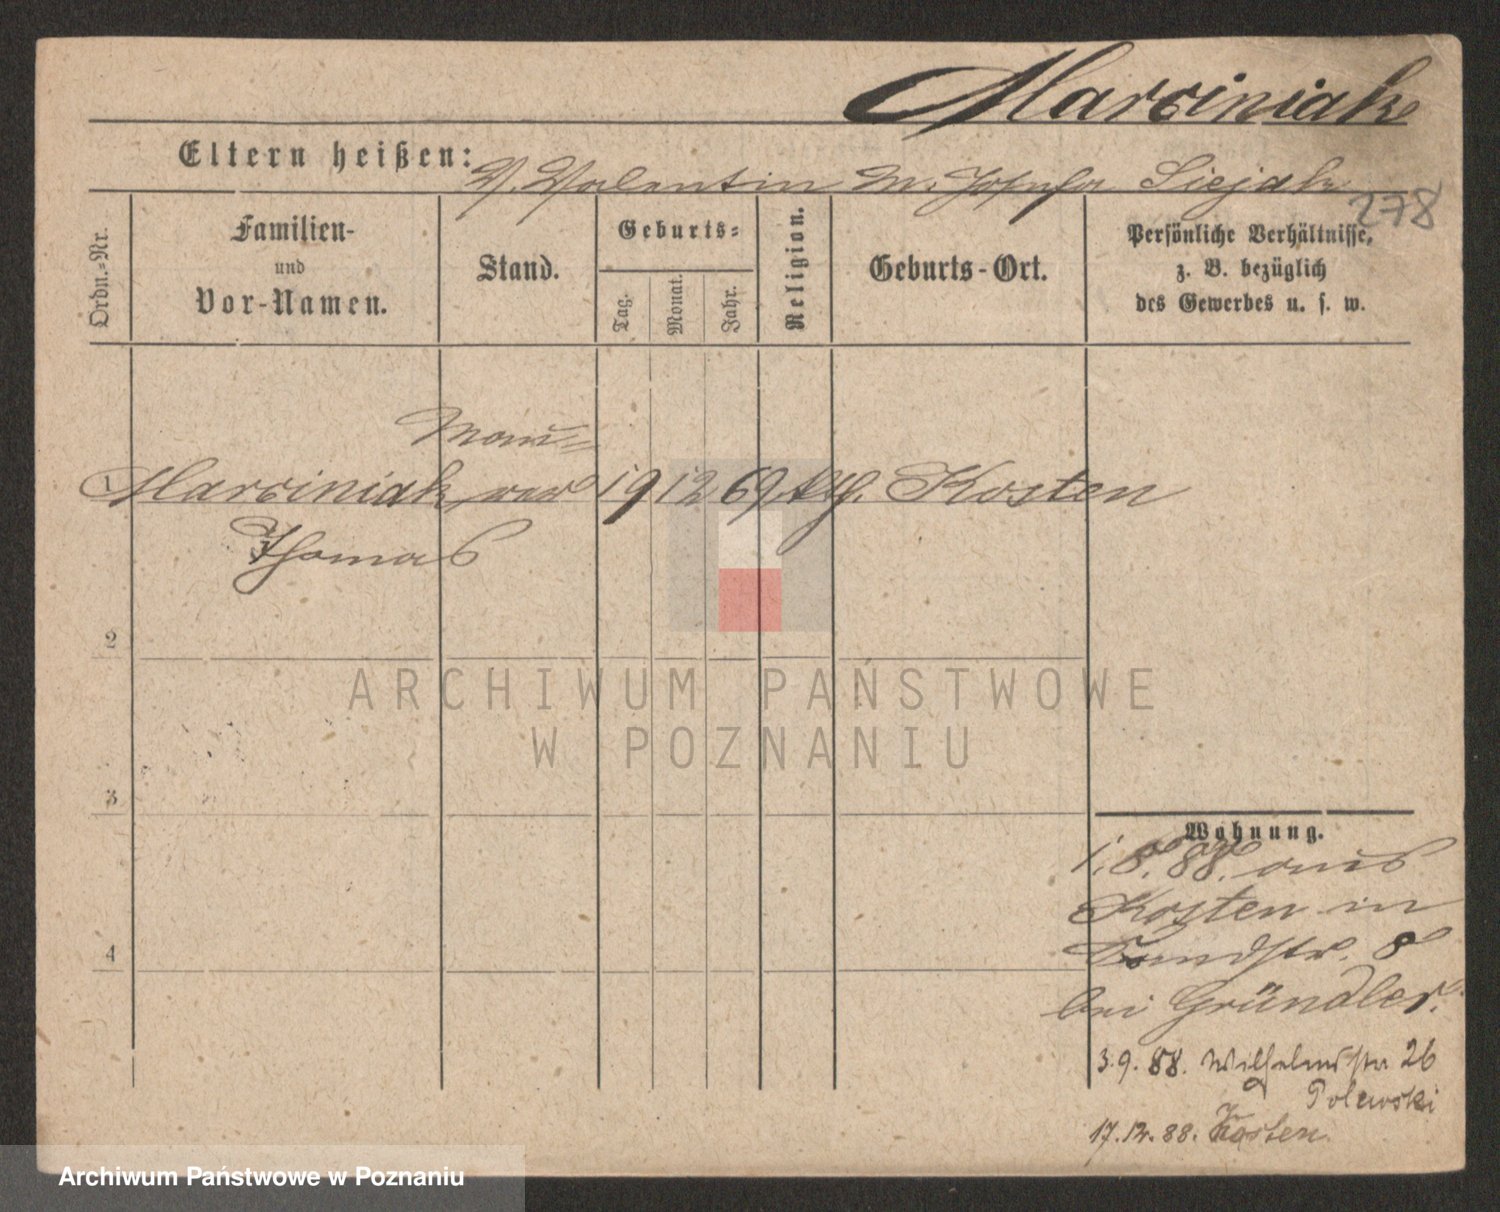 Marciniak
Eltern heißen: V. Valentin M. Josefa Siejak
278
Ordn.-Nr.
Familien-
und
Vor-Namen.
Stand.
Geburts-
Tag.
Monat.
Jahr.
Religion.
Geburts-Ort.
Persönliche Verhältnisse,
z. B. bezüglich
des Gewerbes u. s. w.
Mau-
1 Marciniak, rer 19 12 69 kth. Kosten
Thomas
2
3
4
ARCHIWUM PAŃSTWOWE
W POZNANIU
Wohnung.
1. 8. 88. aus
Kosten in
8
bei Gründler.
3.9. 88. Wilhelmstr 26
Polewski
17.12. 88. Kosten
Archiwum Państwowe w Poznaniu